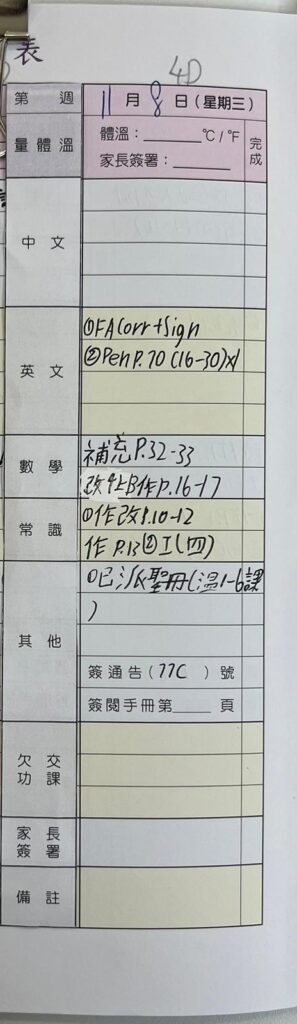 表
4D
第 週 11月8日(星期三)
量體溫 體溫:______℃/℉ 完成
家長簽署:______
中文
英文 ①FA Corr+Sign
②Pen P.70 (16-30)x1
數學 補充P.32-33
改4上B作P.16-17
常識 ①作改P.10-12
作 P.13②I(四)
其他 ①已派聖冊(溫1-6課
)
簽通告(77C )號
簽閱手冊第____頁
欠交功課
家長簽署
備註